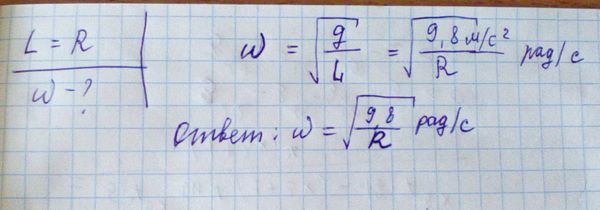 L = R
ω - ?
ω = √(g/L) = √(9,8 м/с²/R) рад/с
Ответ: ω = √(9,8/R) рад/с